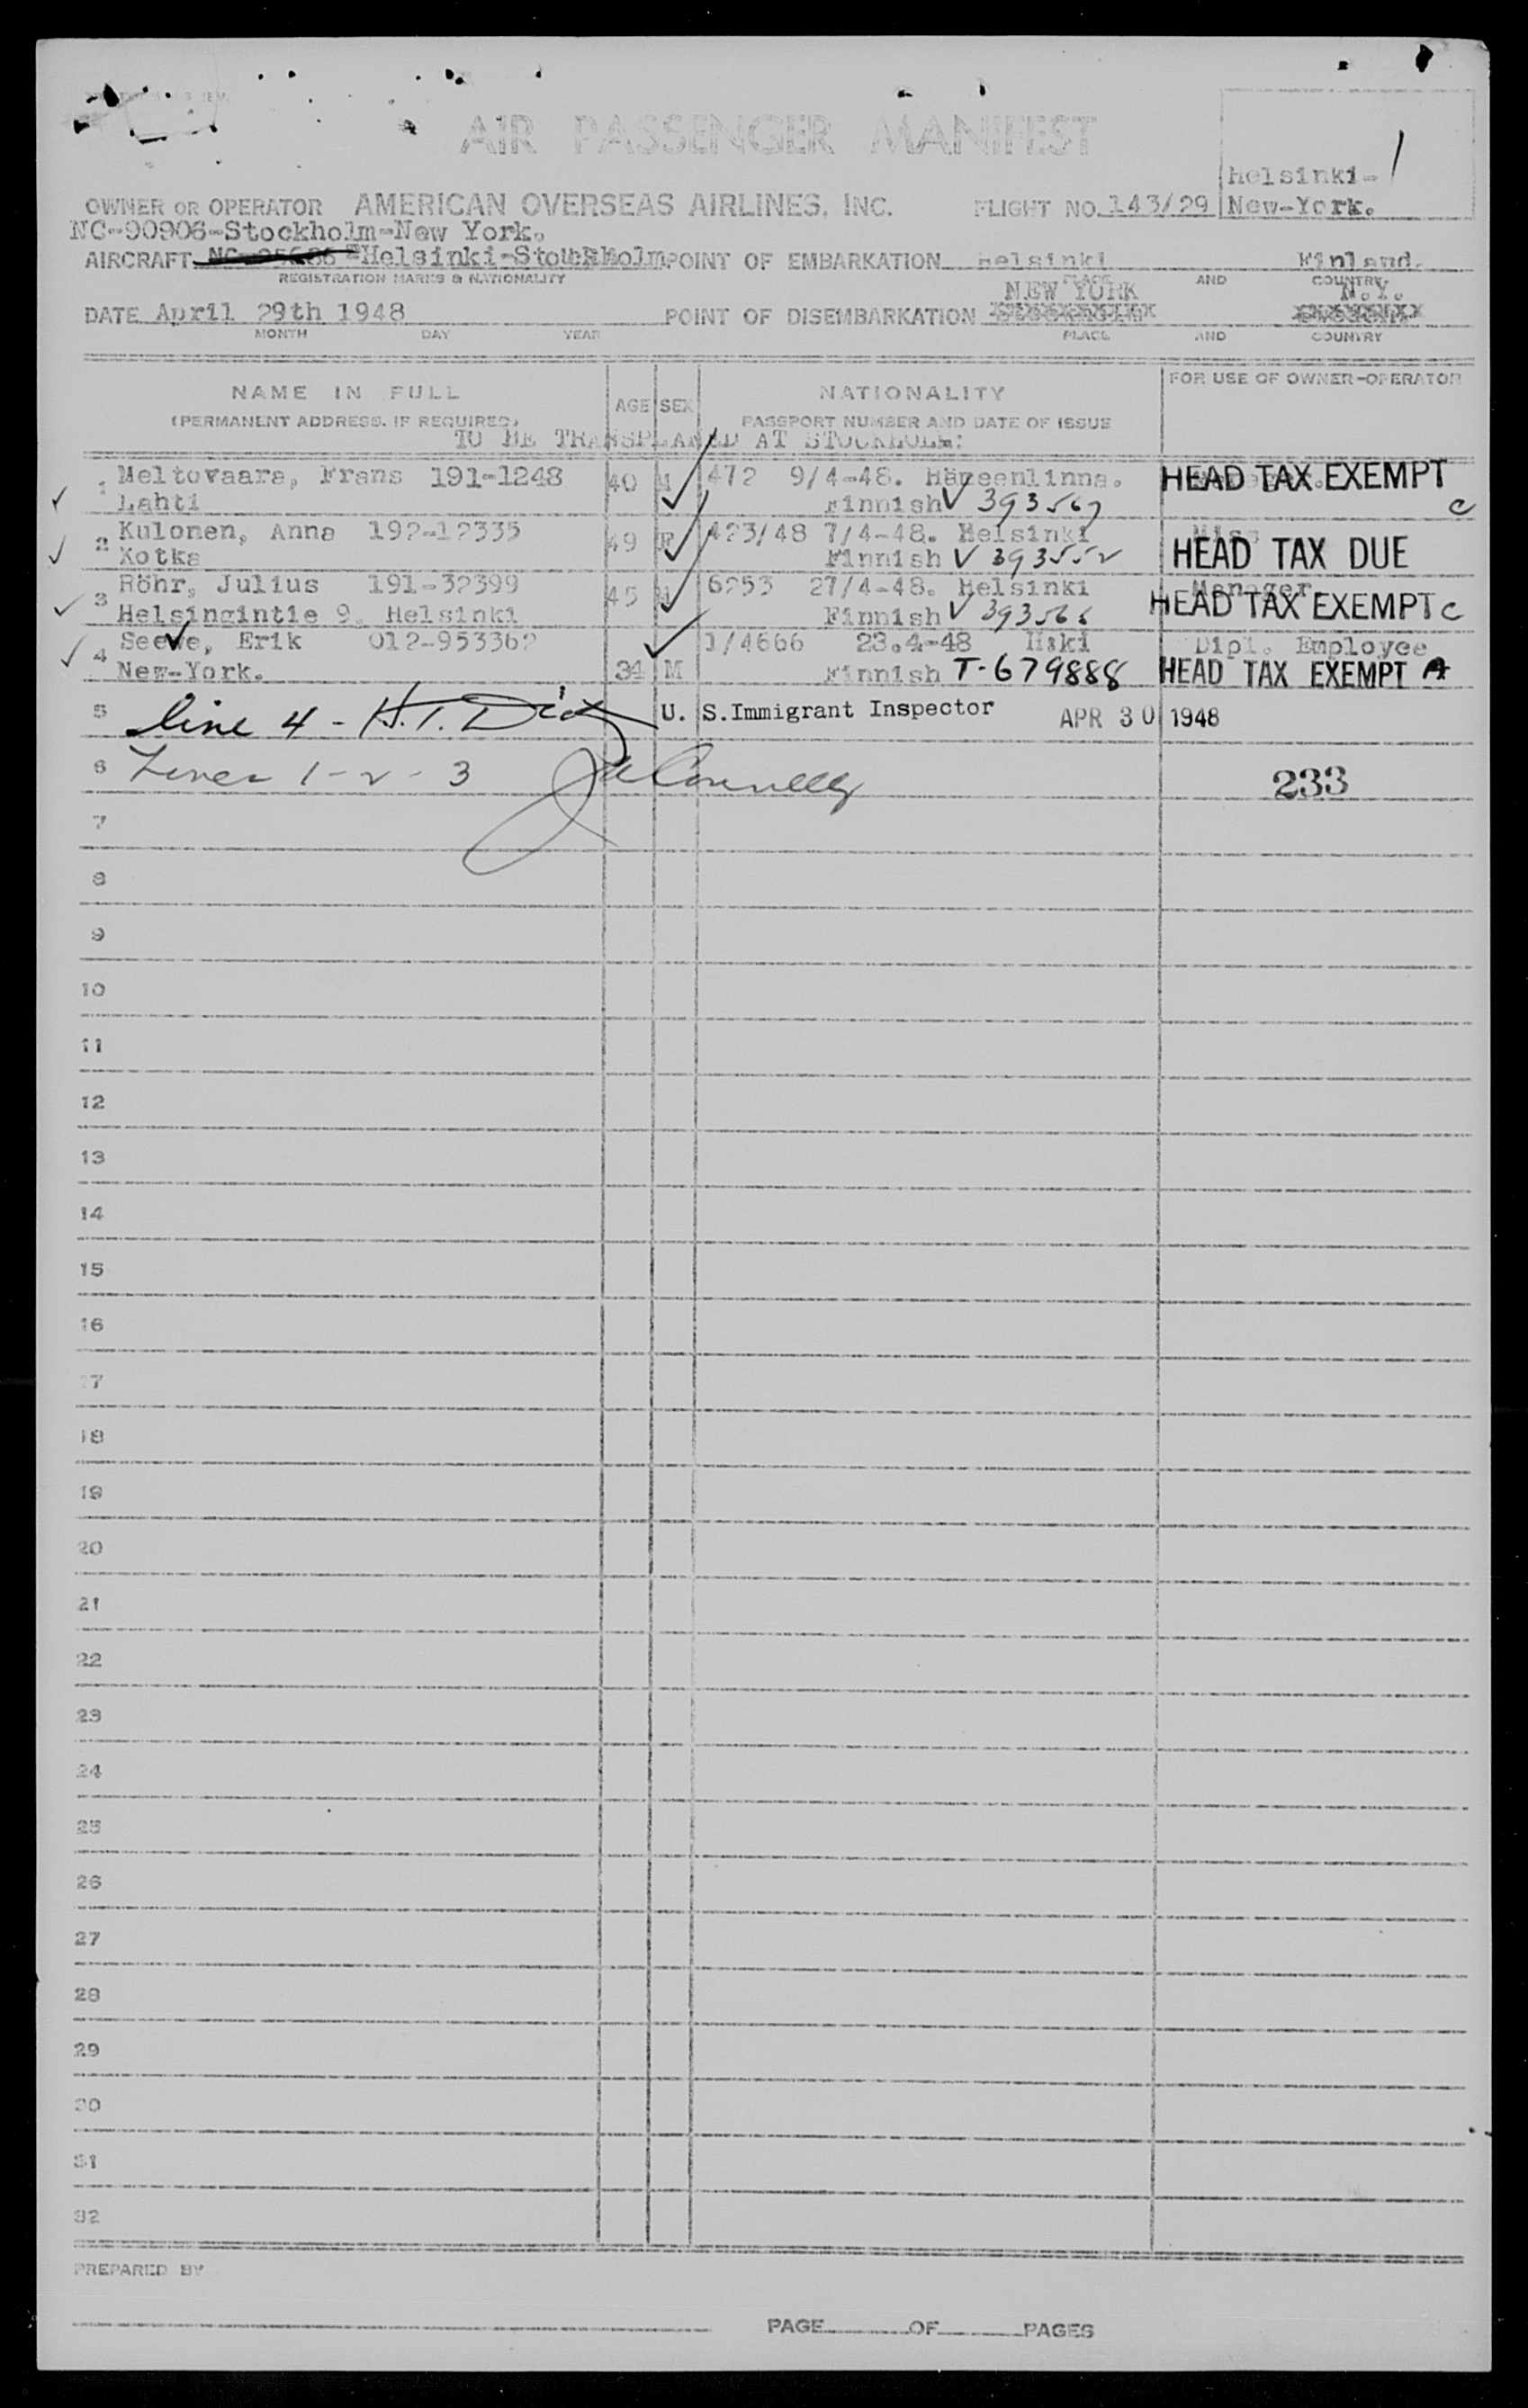 AIR PASSENGER MANIFEST
Helsinki- 1
OWNER OR OPERATOR AMERICAN OVERSEAS AIRLINES, INC. FLIGHT NO. 143/29 New-York.
NC-90906-Stockholm-New York.
AIRCRAFT Helsinki-Stockholm POINT OF EMBARKATION Helsinki Finland.
REGISTRATION MARKS & NATIONALITY PLACE AND COUNTRY
NEW YORK N.Y.
DATE April 29th 1948 POINT OF DISEMBARKATION
MONTH DAY YEAR PLACE AND COUNTRY
NAME IN FULL AGE SEX NATIONALITY FOR USE OF OWNER-OPERATOR
(PERMANENT ADDRESS. IF REQUIRED) PASSPORT NUMBER AND DATE OF ISSUE
TO BE TRANSPLANED AT STOCKHOLM:
1 Meltovaara, Frans 191-1248 40 M 472 9/4-48. Hämeenlinna. HEAD TAX EXEMPT
Lahti Finnish V 393567 c
2 Kulonen, Anna 192-12335 49 F 423/48 7/4-48. Helsinki Miss
Kotka Finnish V 393552 HEAD TAX DUE
3 Röhr, Julius 191-32399 45 M 6253 27/4-48. Helsinki Manager.
Helsingintie 9. Helsinki Finnish V 393566 HEAD TAX EXEMPT c
4 Seeve, Erik 012-953362 1/4666 23.4-48 H:ki Dipl. Employee
New-York. 34 M Finnish T-679888 HEAD TAX EXEMPT A
5 line 4 - H.T. U. S. Immigrant Inspector APR 30 1948
6 Lines 1-2-3 Connelly 233
7
8
9
10
11
12
13
14
15
16
17
18
19
20
21
22
23
24
25
26
27
28
29
30
31
32
PREPARED BY
PAGE OF PAGES